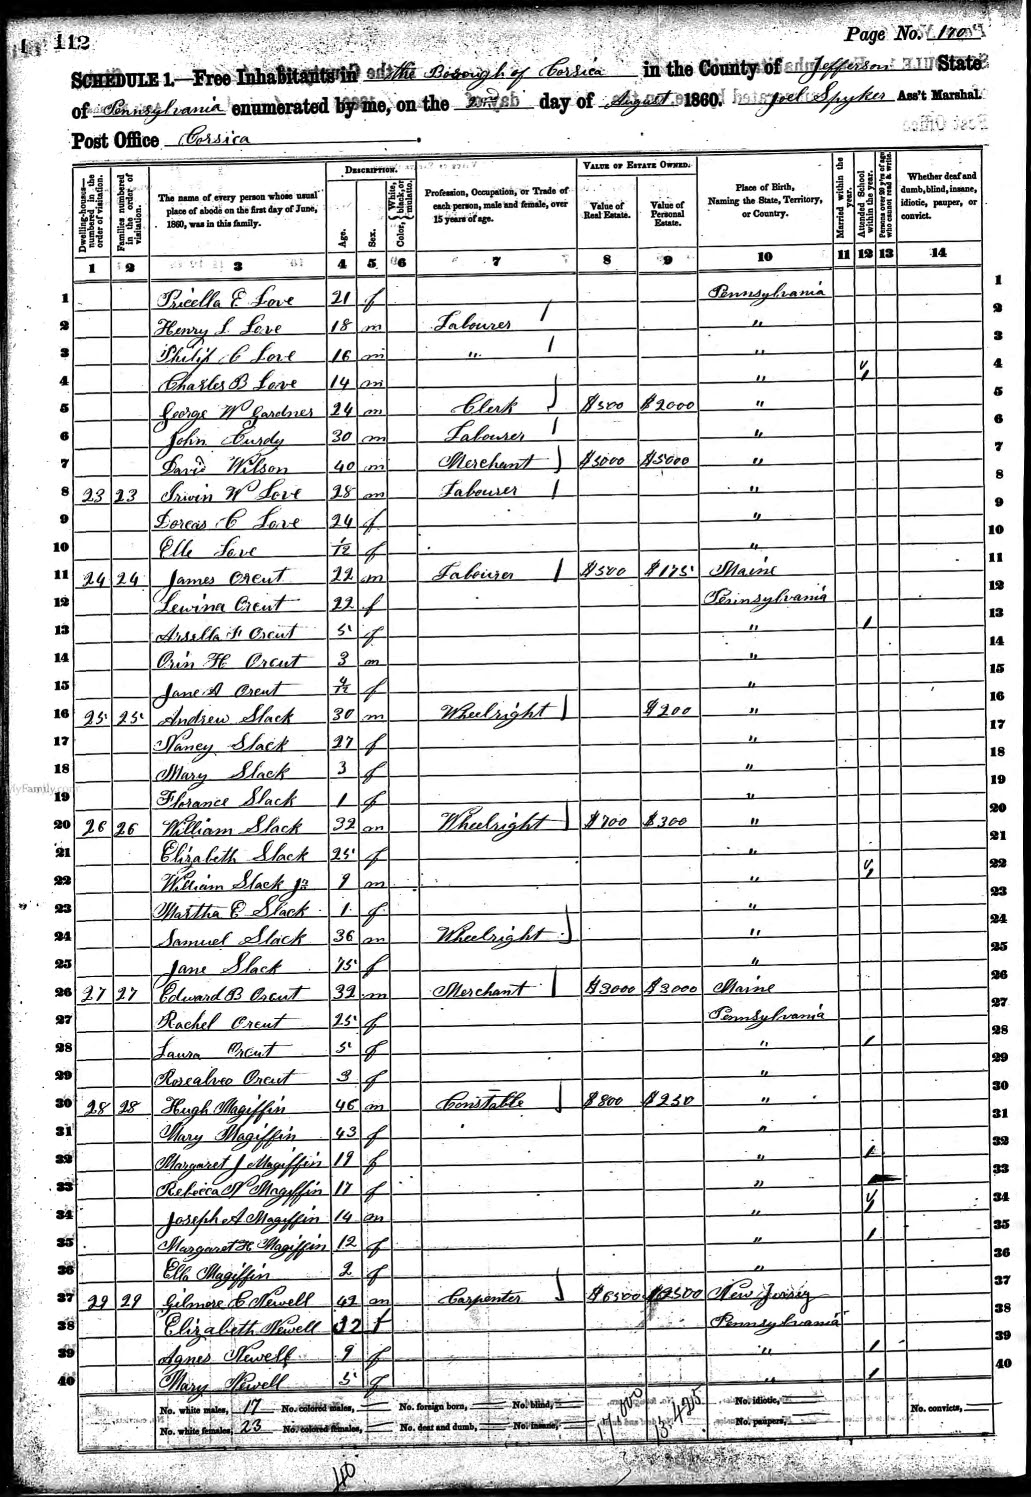 112
Page No. 170
SCHEDULE 1.—Free Inhabitants in the Borough of Corsica in the County of Jefferson State
of Pennsylvania enumerated by me, on the day of August 1860. Joel Spyker Ass't Marshal.
Post Office Corsica
Dwelling-houses—numbered in the order of visitation.
Families numbered in the order of visitation.
The name of every person whose usual place of abode on the first day of June, 1860, was in this family.
DESCRIPTION.
Age.
Sex.
Color, White, black, or mulatto.
Profession, Occupation, or Trade of each person, male and female, over 15 years of age.
VALUE OF ESTATE OWNED.
Value of Real Estate.
Value of Personal Estate.
Place of Birth, Naming the State, Territory, or Country.
Married within the year.
Attended School within the year.
Persons over 20 y'rs of age who cannot read & write.
Whether deaf and dumb, blind, insane, idiotic, pauper, or convict.
1 2 3 4 5 6 7 8 9 10 11 12 13 14
1 Pricella E Love 21 f Pennsylvania 1
2 Henry S. Love 18 m Labourer / " 2
3 Philip C Love 16 m " / " 3
4 Charles B Love 14 m " / 4
5 George W Gardner 24 m Clerk $500 $2000 " 5
6 John Curdy 30 m Labourer / " 6
7 David Wilson 40 m Merchant $5000 $5000 " 7
8 23 23 Irwin W Love 28 m Labourer / " 8
9 Dorcas C Love 24 f " 9
10 Elle Love 1/12 f " 10
11 24 24 James Orcut 22 m Labourer / $500 $175 Maine 11
12 Lewina Orcut 22 f Pennsylvania 12
13 Arsella F Orcut 5 f " / 13
14 Orin H Orcut 3 m " 14
15 Jane A Orcut 4/12 f " 15
16 25 25 Andrew Slack 30 m Wheelright $200 " 16
17 Nancy Slack 27 f " 17
18 Mary Slack 3 f " 18
19 Florance Slack 1 f " 19
20 26 26 William Slack 32 m Wheelright $700 $300 " 20
21 Elizabeth Slack 25 f " 21
22 William Slack Jr 9 m " / 22
23 Martha E Slack 1 f " 23
24 Samuel Slack 36 m Wheelright " 24
25 Jane Slack 75 f " 25
26 27 27 Edward B Orcut 32 m Merchant $3000 $3000 Maine 26
27 Rachel Orcut 25 f Pennsylvania 27
28 Laura Orcut 5 f " / 28
29 Rosealveo Orcut 3 f " 29
30 28 28 Hugh Magiffin 46 m Constable $800 $250 " 30
31 Mary Magiffin 43 f " 31
32 Margaret J Magiffin 19 f " / 32
33 Rebecca N Magiffin 17 f " 33
34 Joseph A Magiffin 14 m " / 34
35 Margaret H Magiffin 12 f " / 35
36 Ella Magiffin 2 f " 36
37 29 29 Gilmore C Newell 42 m Carpenter $6500 $2500 New Jersey 37
38 Elizabeth Newell 32 f Pennsylvania 38
39 Agnes Newell 9 f " / 39
40 Mary Newell 5 f " / 40
No. white males, 17 No. colored males, — No. foreign born, — No. blind, — 17.000 13.425 No. idiotic, — No. convicts, —
No. white females, 23 No. colored females, — No. deaf and dumb, — No. insane, — No. paupers, —
40